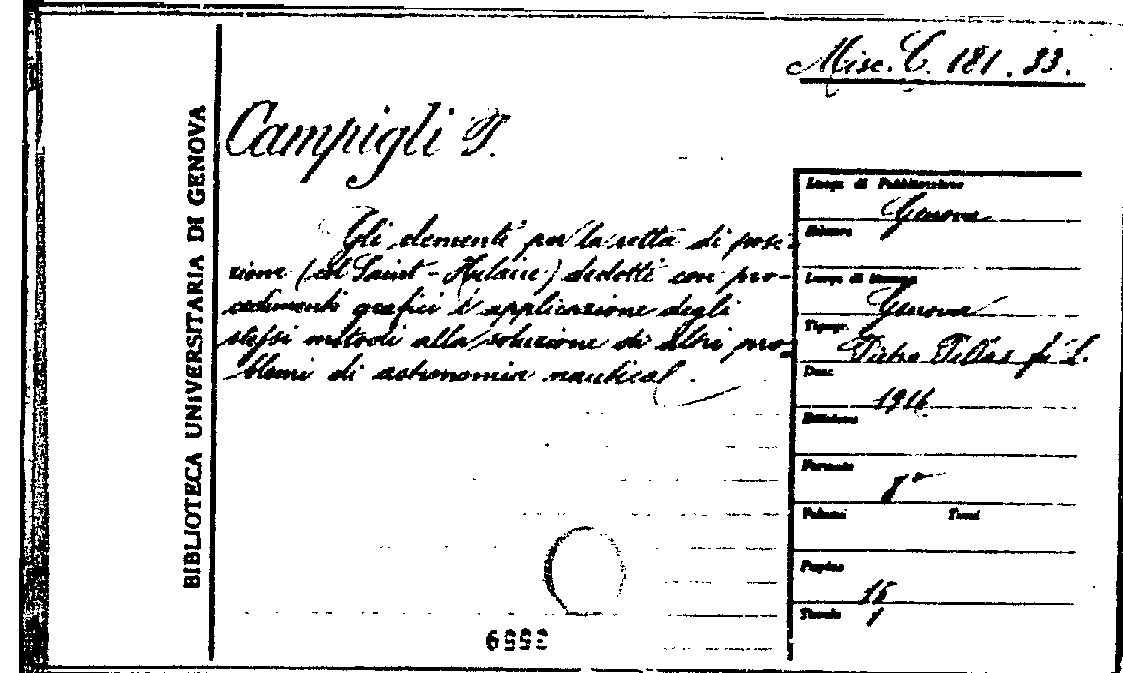 Misc. C. 181. 33.
BIBLIOTECA UNIVERSITARIA DI GENOVA
Campigli T.
Gli elementi per la retta di posi-
zione (col Saint-Hilaire) dedotti con pro-
cedimenti grafici e applicazione degli
stessi metodi alla soluzione di altri pro-
blemi di astronomia nautica.
Luogo di Pubblicazione
Genova
Editore
Luogo di Stampa
Genova
Tipogr.
Pietro Pellas fu L.
Data
1916
Edizione
Formato
8°
Volumi Tomi
Pagine
16
Tavole
1